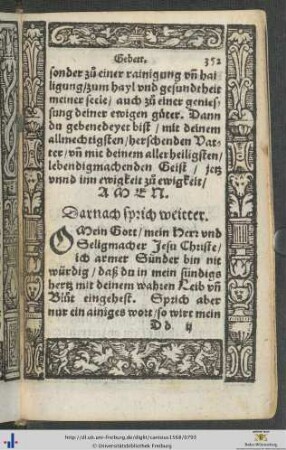 Gebett. 352
sonder zů einer rainigung vñ hai-
ligung/zum hayl vnd gesundtheit
meiner seele/auch zů einer genies-
sung deiner ewigen güter. Dann
du gebenedeyet bist/mit deinem
allmechtigsten/herschenden Vat-
ter/vñ mit deinem allerheiligsten/
lebendigmachenden Geist/jetz
vnnd inn ewigkeit zů ewigkeit/
AMEN.
Darnach sprich weitter.
O Mein Gott/mein Herr vnd
Seligmacher Jesu Christe/
ich armer Sünder bin nit
würdig/daß du in mein sündigs
hertz mit deinem wahren Leib vñ
Blůt eingehest. Sprich aber
nur ein ainiges wort/so wirt mein
Dd ij
http://dl.ub.uni-freiburg.de/diglit/canisius1568/0793
© Universitätsbibliothek Freiburg
Baden-Württemberg